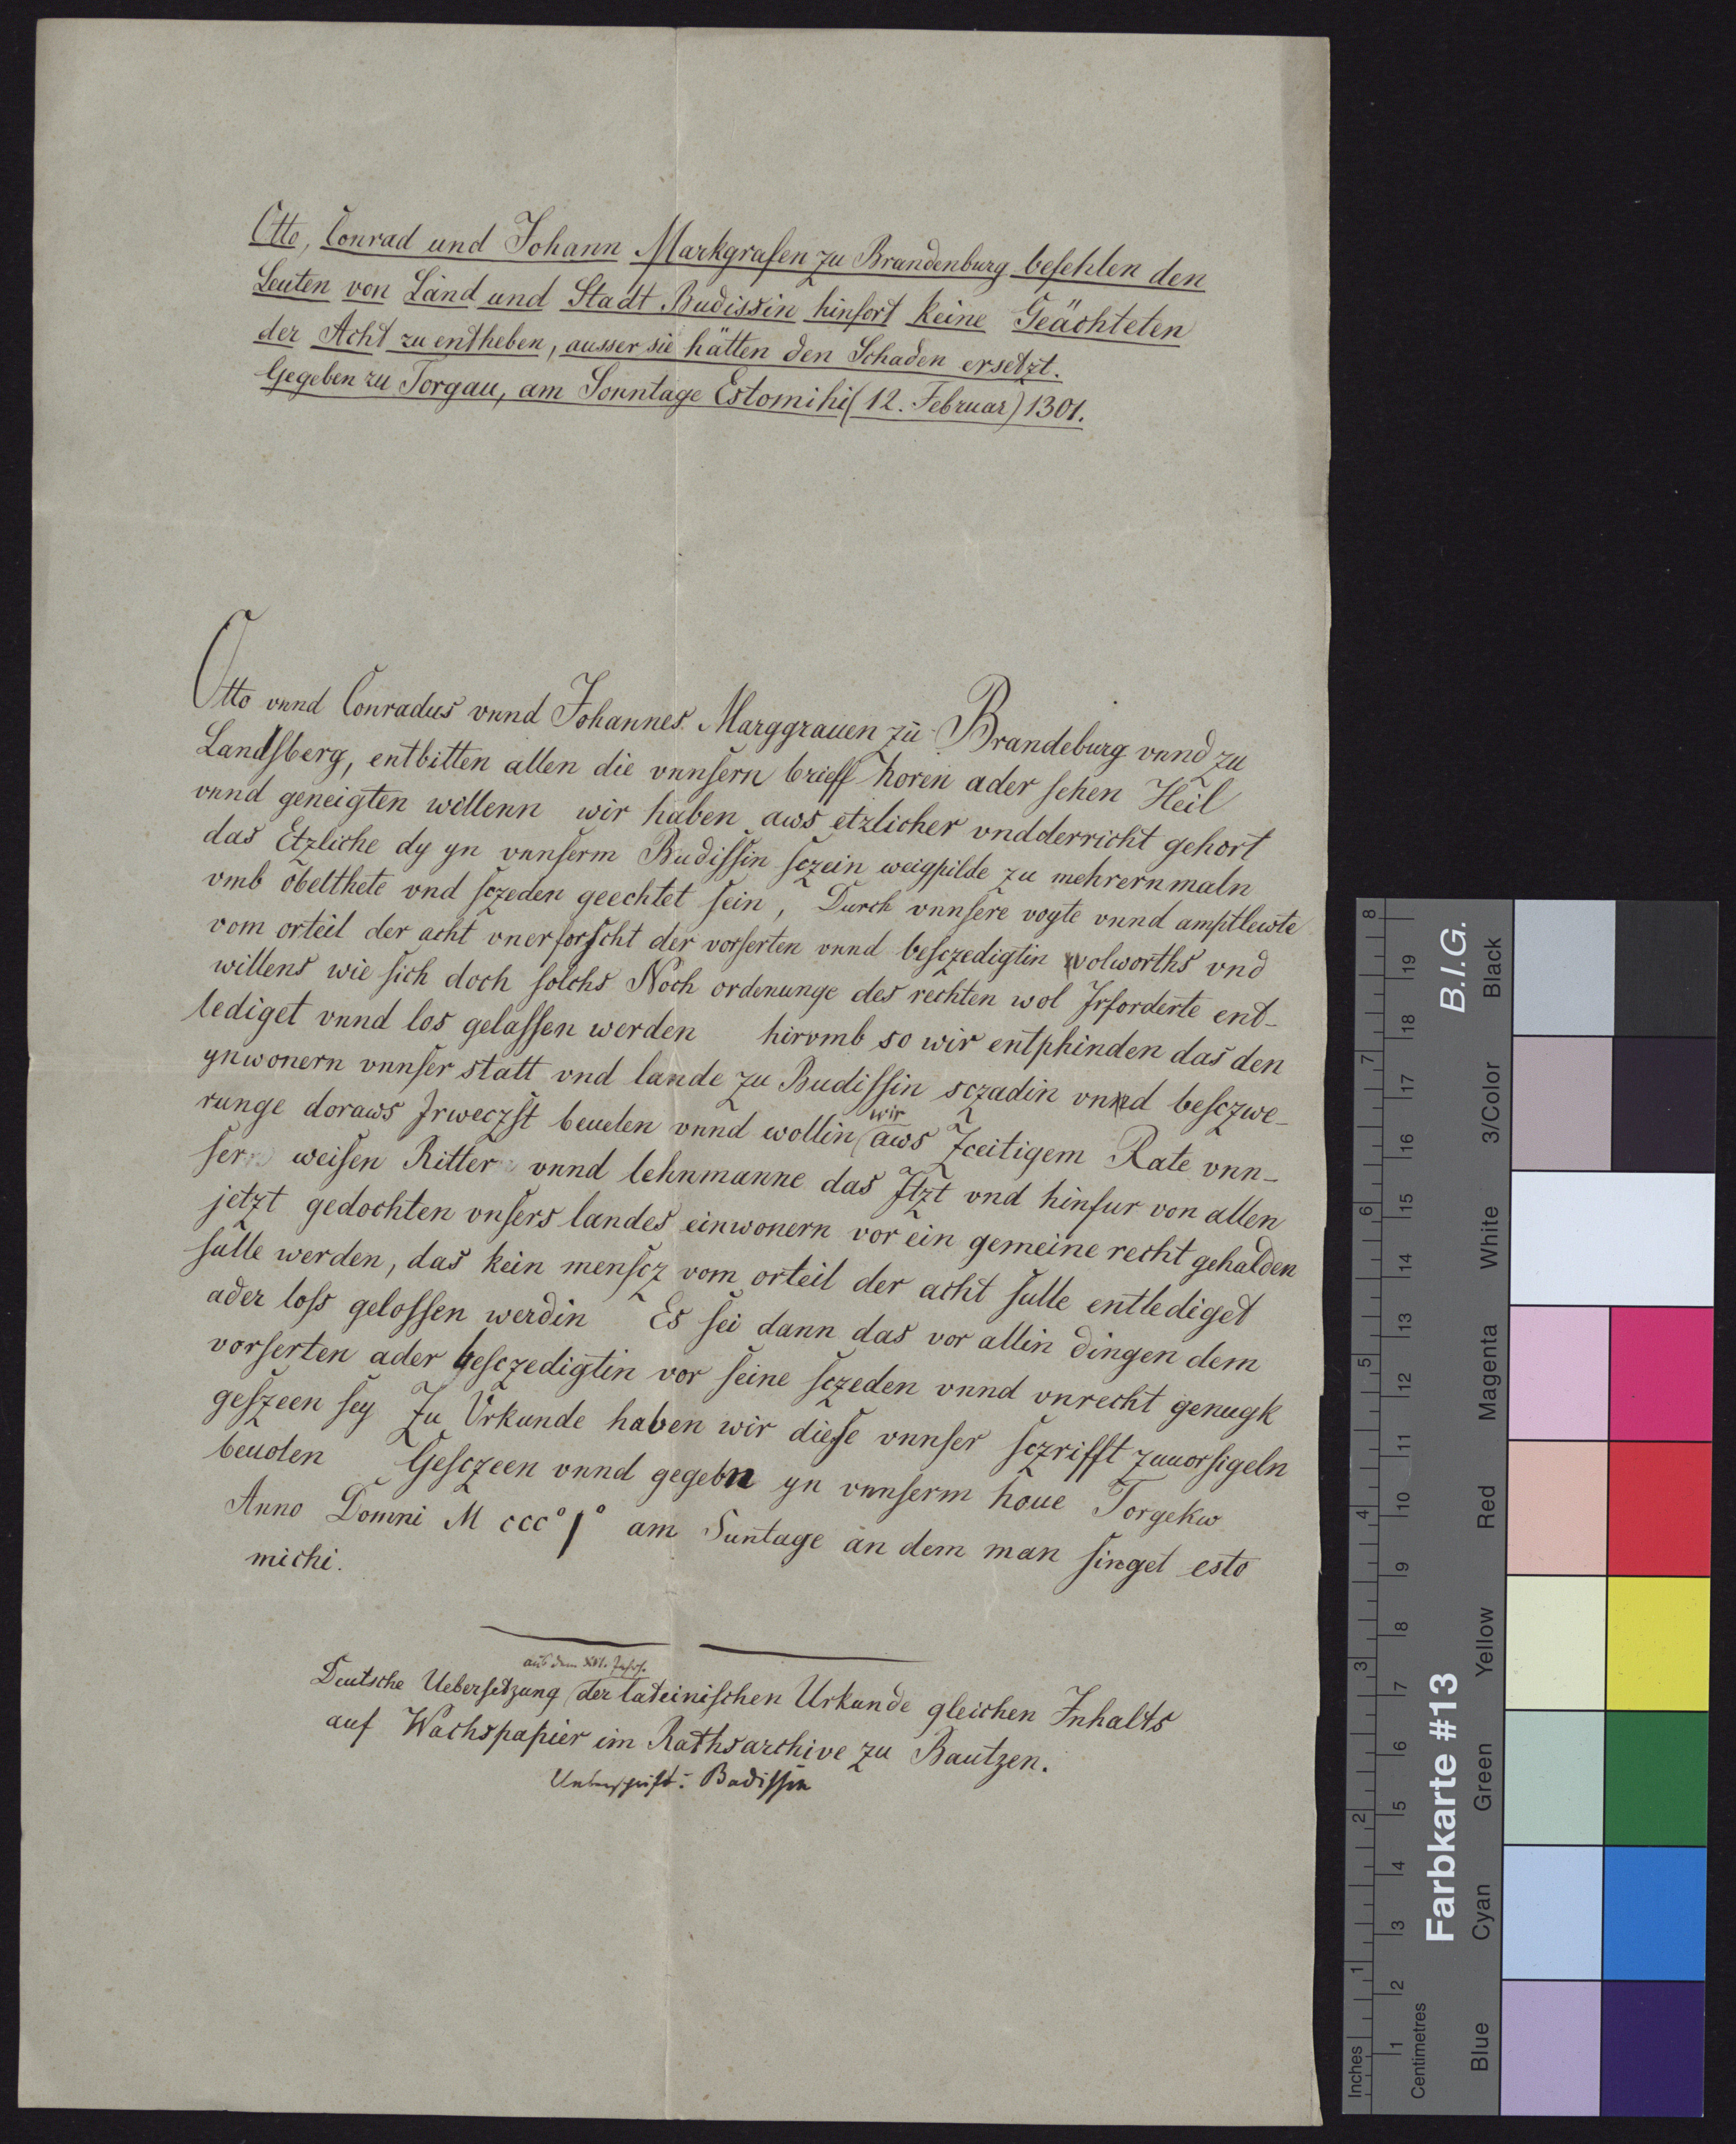 Otto, Conrad und Johann Markgrafen zu Brandenburg befehlen den
Leuten von Land und Stadt Budissin hinfort keine Geächteten
der Acht zu entheben, ausser sie hätten den Schaden ersetzt.
Gegeben zu Torgau, am Sonntage Estomihi (12. Februar) 1301.
Otto vnnd Conradus vnnd Johannes Marggrauen zu Brandeburg vnnd zu
Landsberg, entbitten allen die vnnsern brieff horen ader sehen Heil
vnnd geneigten willenn wir haben aws etzlicher vndderricht gehort
das Etzliche dy yn vnnserm Budissin sczein weigpilde zu mehrern maln
vmb obelthete vnd sczeden geechtet sein, Durch vnnsere vogte vnnd amptlewte
vom orteil der acht vnerforscht der vorserten vnnd besczedigtin volworths vnd
willens wie sich doch solchs Noch ordenunge des rechten wol Jrforderte ent-
lediget vnnd los gelassen werden hirvmb so wir entphinden das den
ynwonern vnnser statt vnd lande zu Budissin sczadin vnnd besczwe-
runge doraws Jrweczst beuelen vnnd wollin wir aws Zceitigem Rate vnn-
ser weisen Ritter vnnd lehnmanne das Jtzt vnd hinfur von allen
jetzt gedochten vnsers landes einwonern vor ein gemeine recht gehalden
sulle werden, das kein menscz vom orteil der acht sulle entlediget
ader loss gelossen werdin Es sei dann das vor allin dingen dem
vorserten ader besczedigtin vor seine sczeden vnnd vnrecht genugk
geszeen sey Zu Vrkunde haben wir diese vnnser sczrifft zuuorsigeln
beuolen Gesczeen vnnd gegebn yn vnnserm houe Torgekw
Anno Domni M ccc° j° am Suntage an dem man singet esto
michi.
aus dem XVI. Jahrh.
Deutsche Uebersetzung der lateinischen Urkunde gleichen Inhalts
auf Wachspapier im Rathsarchive zu Bautzen.
Ueberschrift: Budissin
Inches 1 2 3 4 5 6 7 8
Centimetres 1 2 3 4 5 6 7 8 9 10 11 12 13 14 15 16 17 18 19
Farbkarte #13 B.I.G.
Blue Cyan Green Yellow Red Magenta White 3/Color Black